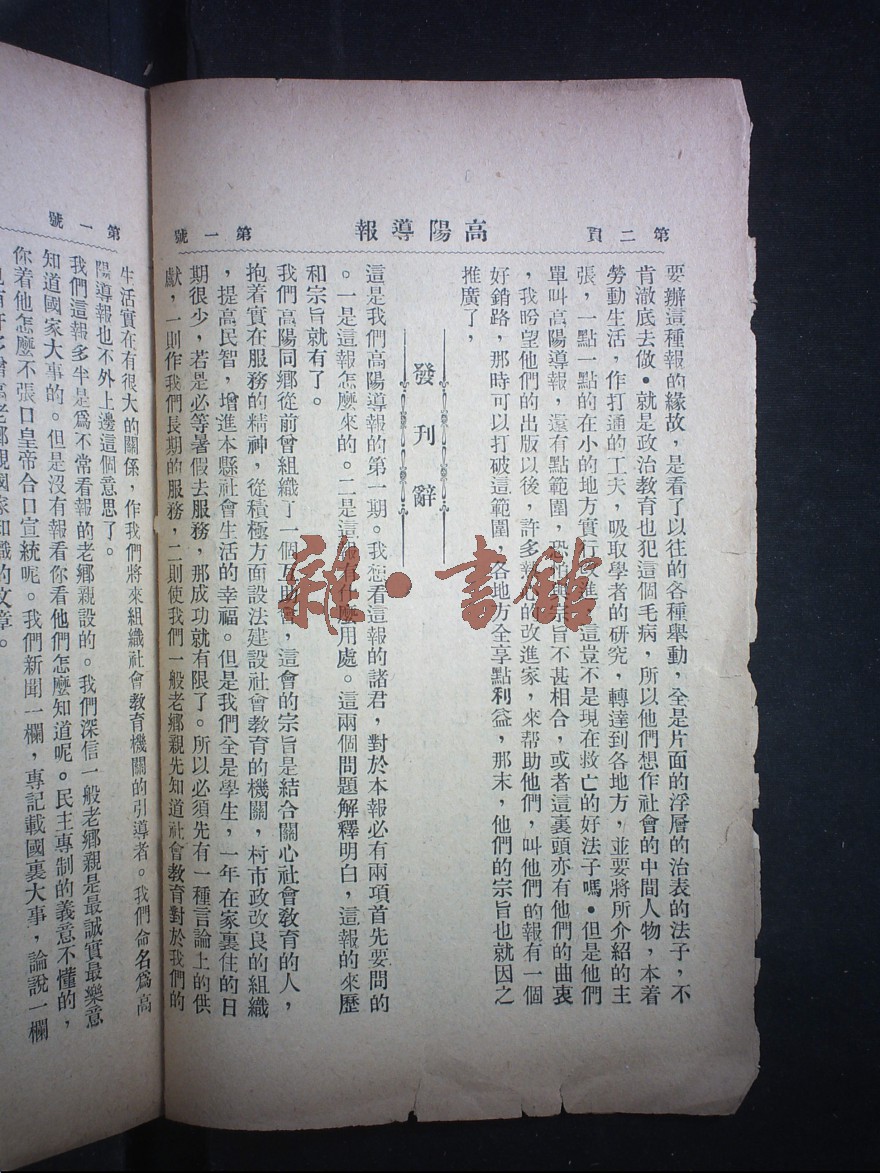 第二頁
高陽導報
第一號
要辦這種報的緣故，是看了以往的各種舉動，全是片面的浮層的治表的法子，不
肯澈底去做•就是政治教育也犯這個毛病，所以他們想作社會的中間人物，本着
勞動生活，作打通的工夫，吸取學者的研究，轉達到各地方，並要將所介紹的主
張，一點一點的在小的地方實行改進，這豈不是現在救亡的好法子嗎•但是他們
單叫高陽導報，還有點範圍，恐怕與宗旨不甚相合，或者這裏頭亦有他們的曲衷
，我盼望他們的出版以後，許多報的改進家，來帮助他們，叫他們的報有一個
好銷路，那時可以打破這範圍，各地方全享點利益，那末，他們的宗旨也就因之
推廣了，
發刊辭
這是我們高陽導報的第一期。我想看這報的諸君，對於本報必有兩項首先要問的
。一是這報怎麼來的。二是這報有什麼用處。這兩個問題解釋明白，這報的來歷
和宗旨就有了。
我們高陽同鄉從前曾組織了一個互助會，這會的宗旨是結合關心社會教育的人，
抱着實在服務的精神，從積極方面設法建設社會教育的機關，村市政改良的組織
，提高民智，增進本縣社會生活的幸福。但是我們全是學生，一年在家裏住的日
期很少，若是必等暑假去服務，那成功就有限了。所以必須先有一種言論上的供
獻，一則作我們長期的服務，二則使我們一般老鄉親先知道社會教育對於我們的
第一號
生活實在有很大的關係，作我們將來組織社會教育機關的引導者。我們命名爲高
陽導報也不外上邊這個意思了。
我們這報多半是爲不常看報的老鄉親設的。我們深信一般老鄉親是最誠實最樂意
知道國家大事的。但是沒有報看你看他們怎麼知道呢。民主專制的義意不懂的，
你着他怎麼不張口皇帝合口宣統呢。我們新聞一欄，專記載國裏大事，論說一欄
老鄉親國家知識的文章。
雜•書館